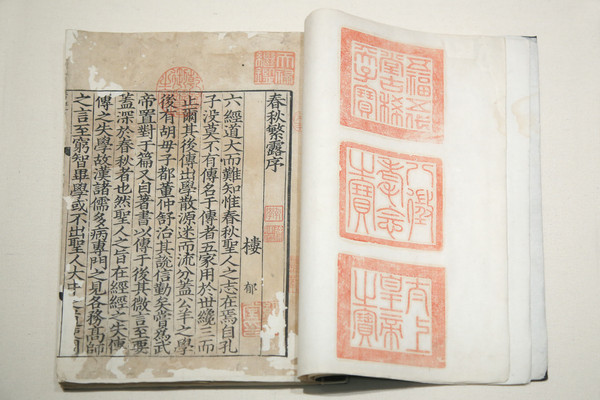 五福五代
堂古稀
天子寶
八徵
耄念
之寶
太上
皇帝
之寶
春秋繁露序
樓郁
六經道大而難知惟春秋聖人之志在焉自孔
子没莫不有傳名于傳者五家用於世纔三而
止爾其後傳出學散源迷而流分蓋公羊之學
後有胡母子都董仲舒治其說信勤矣嘗爲武
帝置對于篇又自著書以傳于後其微言至要
蓋深於春秋者也然聖人之旨在經經之失傳
傳之失學故漢諸儒多病專門之見各務高師
之言至窮智畢學或不出聖人大中之